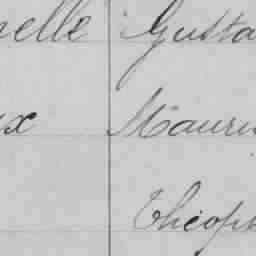 nelle Gusta
ux Mauri
Théoph